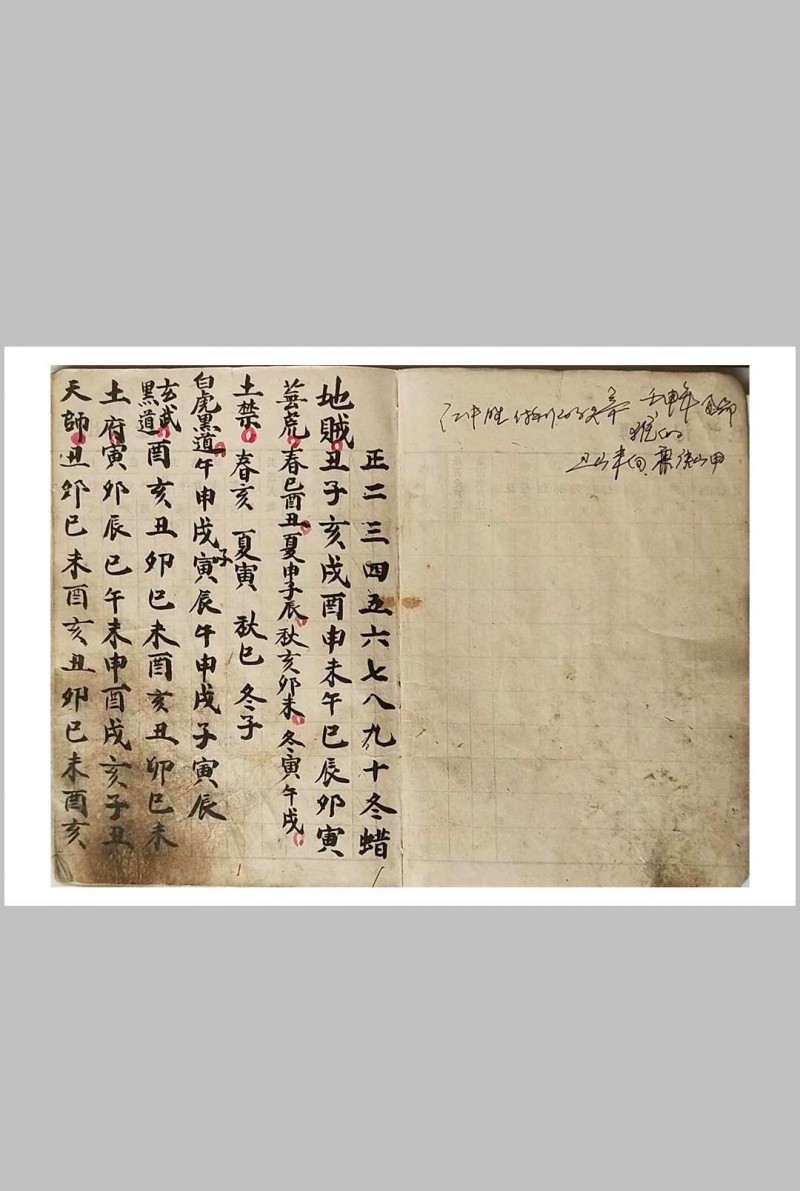 壬申年
正二三四五六七八九十冬蜡
地賊丑子亥戌酉申未午巳辰卯寅
荒春巳酉丑夏申子辰秋亥卯未冬寅午戌
土禁春亥夏寅秋巳冬子
白虎黑道午申戌子寅辰午申戌子寅辰
玄武黑道酉亥丑卯巳未酉亥丑卯巳未
土府寅卯辰巳午未申酉戌亥子丑
天師丑卯巳未酉亥丑卯巳未酉亥